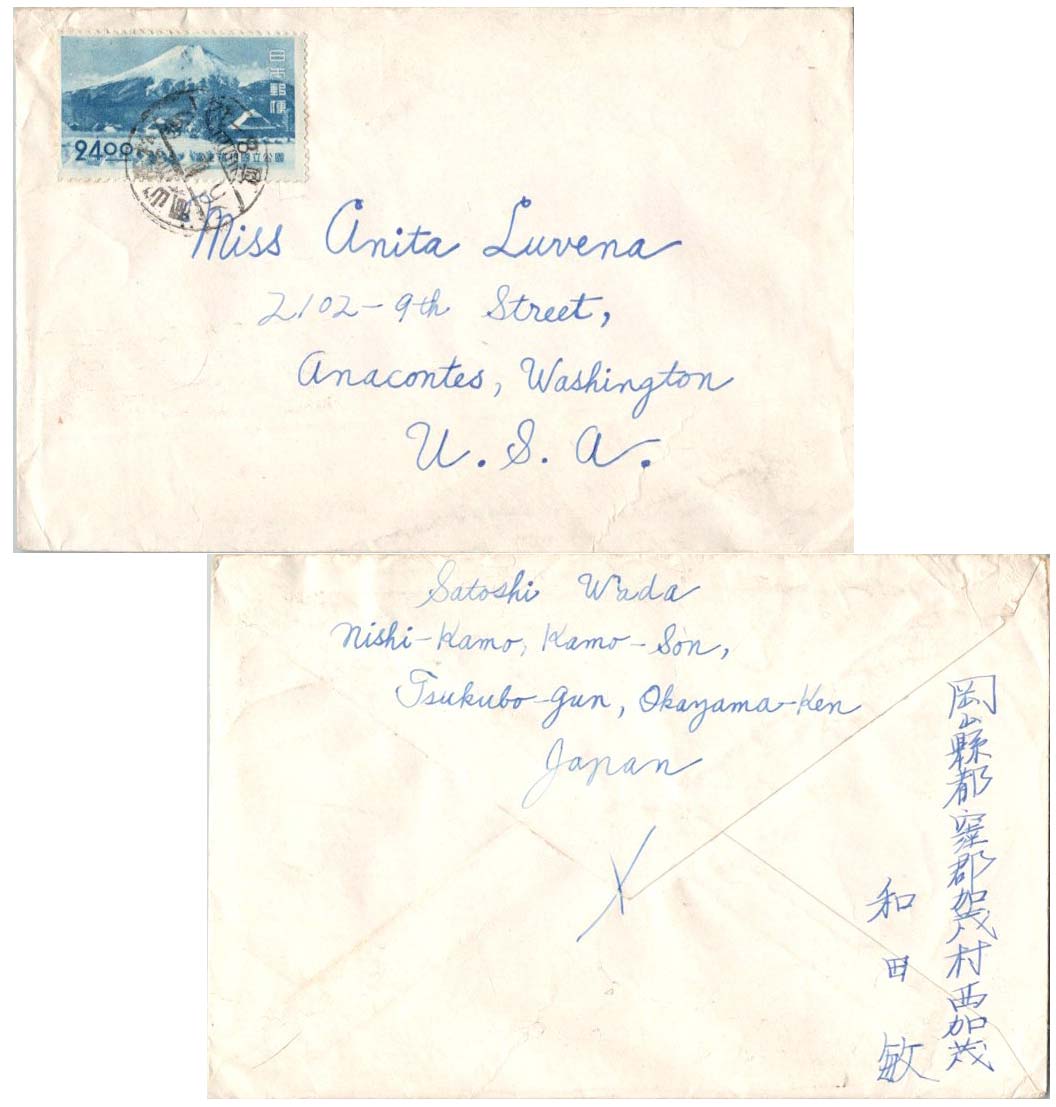 日本郵便
24.00
Miss Anita Luvena
2102-9th Street,
Anacontes, Washington
U. S. A.
Satoshi Wada
Nishi-Kamo, Kamo-Son,
Tsukubo-gun, Okayama-Ken
Japan
岡山縣都窪郡加茂村西加茂
和田敏